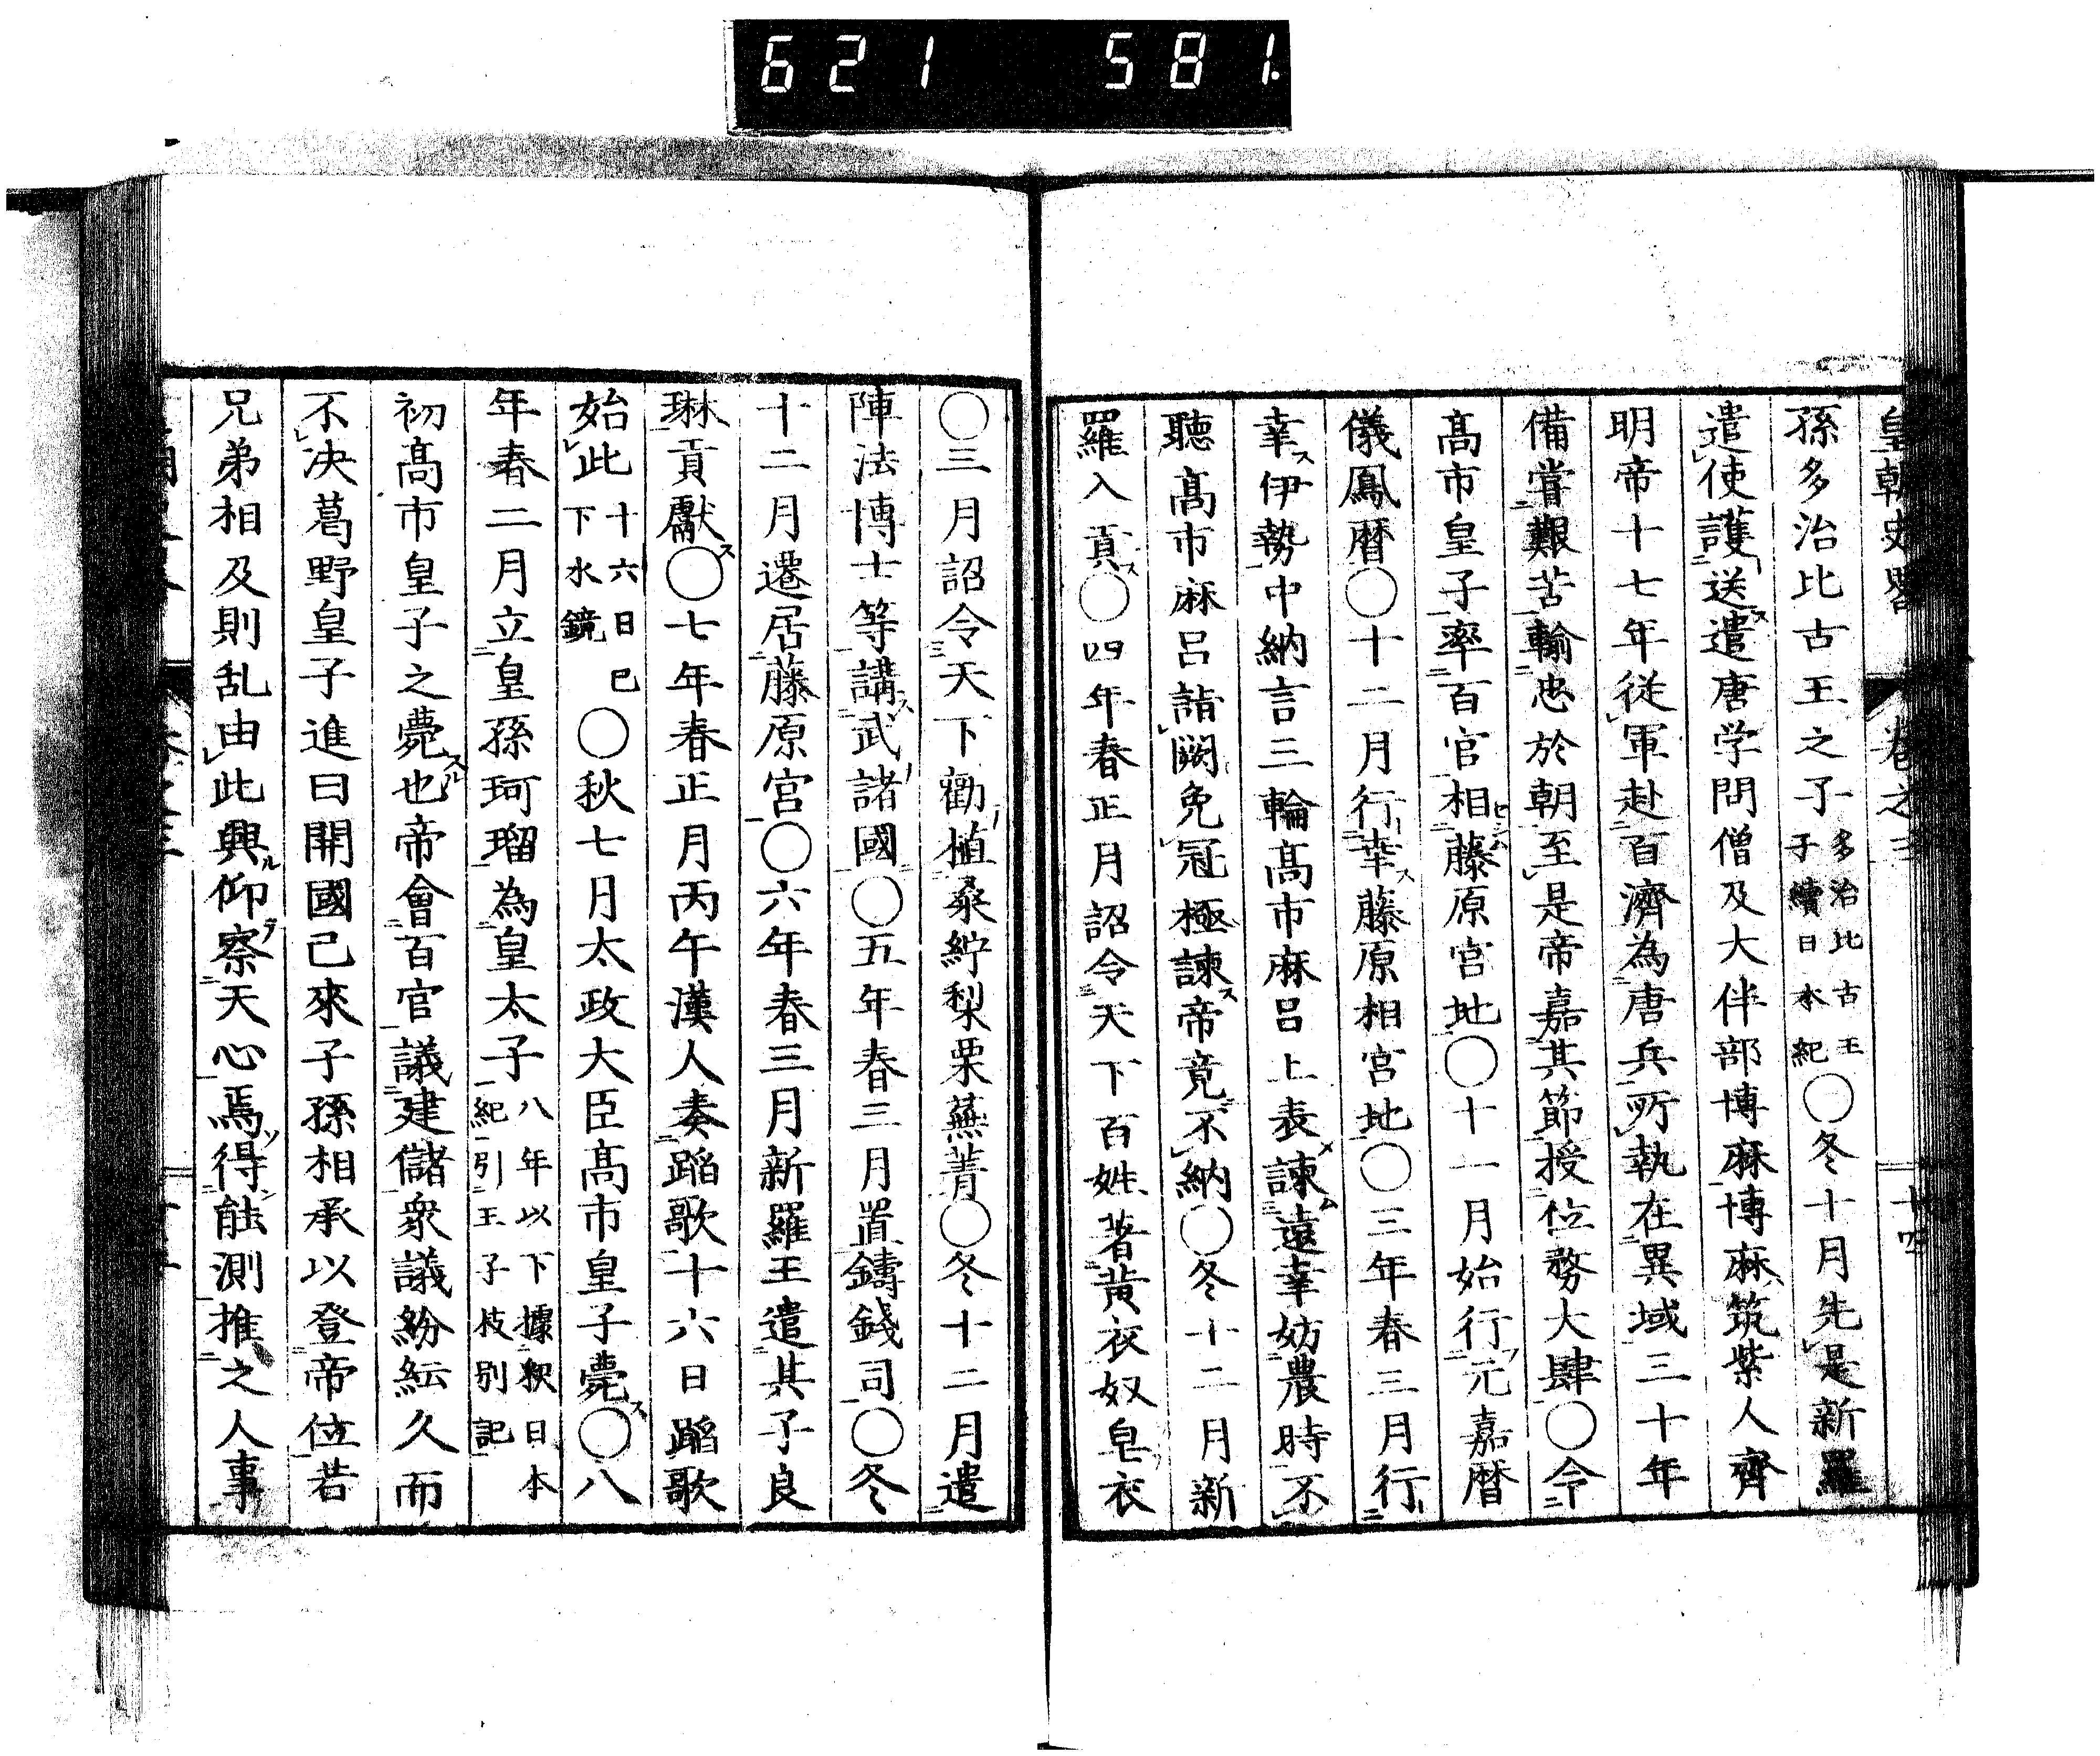 621 581
皇朝史畧 卷之三 十四
孫多治比古王之子多治比古王于續日本紀〇冬十月先是新羅
遣使護送遣唐学問僧及大伴部博麻博麻筑紫人齊
明帝十七年從軍赴百濟為唐兵所執在異域三十年
備嘗艱苦輸忠於朝至是帝嘉其節授位務大肆〇令
髙市皇子率百官相藤原宮地〇十一月始行元嘉暦
儀鳳暦〇十二月行幸藤原相宮地〇三年春三月行
幸伊勢中納言三輪髙市麻呂上表諫遠幸妨農時不
聽髙市麻呂詣闕免冠極諫帝竟不納〇冬十二月新
羅入貢〇四年春正月詔令天下百姓著黄衣奴皂衣
〇三月詔令天下勸植桑紵梨栗蕪菁〇冬十二月遣
陣法博士等講武諸國〇五年春三月置鑄錢司〇冬
十二月遷居藤原宮〇六年春三月新羅王遣其子良
琳貢獻〇七年春正月丙午漢人奏蹈歌十六日蹈歌
始此十六日已下水鏡〇秋七月太政大臣髙市皇子薨〇八
年春二月立皇孫珂瑠為皇太子八年以下據釈日本紀引王子枝別記
初髙市皇子之薨也帝會百官議建儲衆議紛紜久而
不决葛野皇子進曰開國已來子孫相承以登帝位若
兄弟相及則乱由此興仰察天心焉得能測推之人事